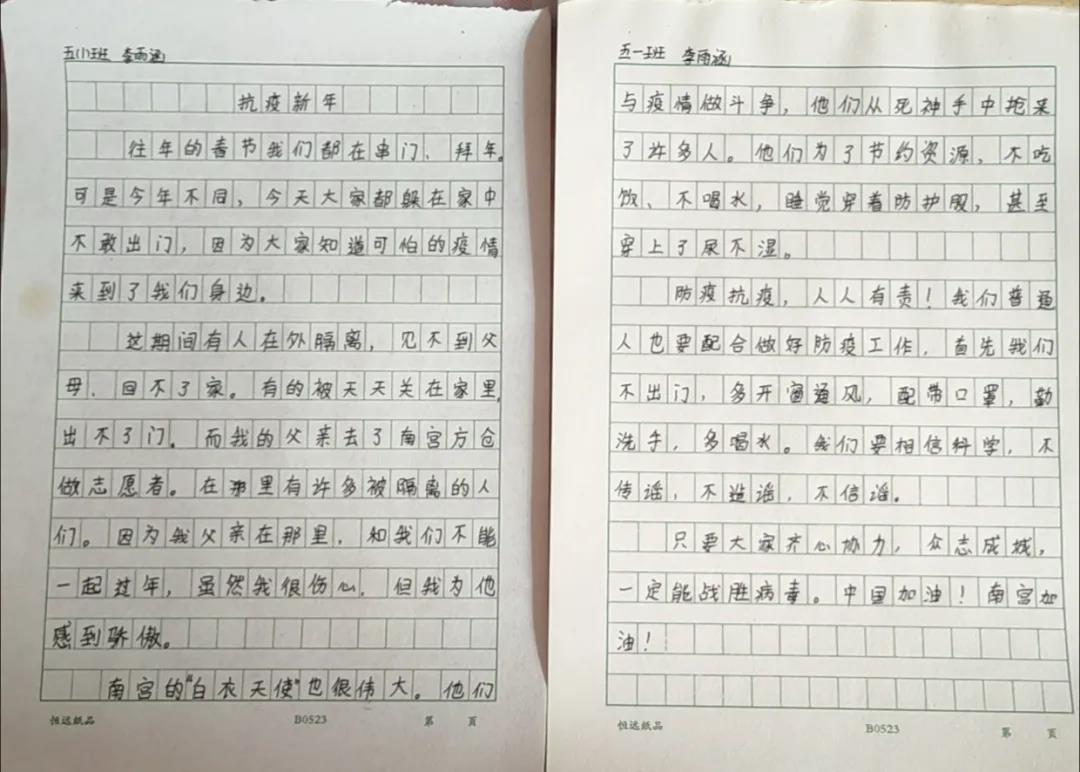 五(1)班 李雨涵
抗疫新年
往年的春节我们都在串门、拜年。
可是今年不同，今天大家都躲在家中
不敢出门，因为大家知道可怕的疫情
来到了我们身边。
这期间有人在外隔离，见不到父
母、回不了家。有的被天天关在家里，
出不了门。而我的父亲去了南宫方仓
做志愿者。在那里有许多被隔离的人
们。因为我父亲在那里，和我们不能
一起过年，虽然我很伤心，但我为他
感到骄傲。
南宫的"白衣天使"也很伟大。他们
恒远纸品 B0523 第 页
五一班 李雨涵
与疫情做斗争，他们从死神手中抢来
了许多人。他们为了节约资源，不吃
饭、不喝水，睡觉穿着防护服，甚至
穿上了尿不湿。
防疫抗疫，人人有责！我们普通
人也要配合做好防疫工作，首先我们
不出门，多开窗通风，配带口罩，勤
洗手，多喝水。我们要相信科学，不
传谣，不造谣，不信谣。
只要大家齐心协力，众志成城，
一定能战胜病毒。中国加油！南宫加
油！
恒远纸品 B0523 第 页